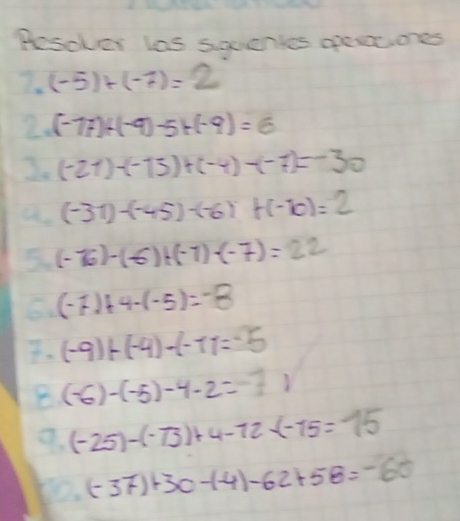 Resolver las siguientes operaciones
1. (-5)+(-7)= 2
2. (-17)+(-9)-5+(-9)=6
3. (-21)-(-13)+(-4)-(-7)=-30
4. (-31)-(-45)-(-6) +(-10)=2
5. (-16)-(-6)+(-1)-(-7)=22
6. (-7)+4-(-5)=-8
7. (-9)+(-4)-(-11=-5
8. (-6)-(-5)-4-2=-7
9. (-25)-(-13)+4-12-(-15=-15
10. (-37)+30-(-4)-62+58=-60